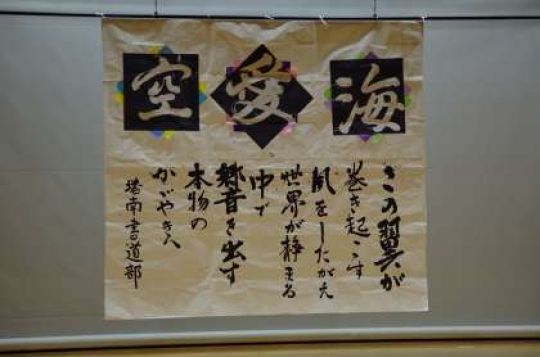 海愛空
この翼が
巻き起こす
風をしたがえ
世界が静まる
中で
響き出す
本物の
かがやきへ
塔南書道部